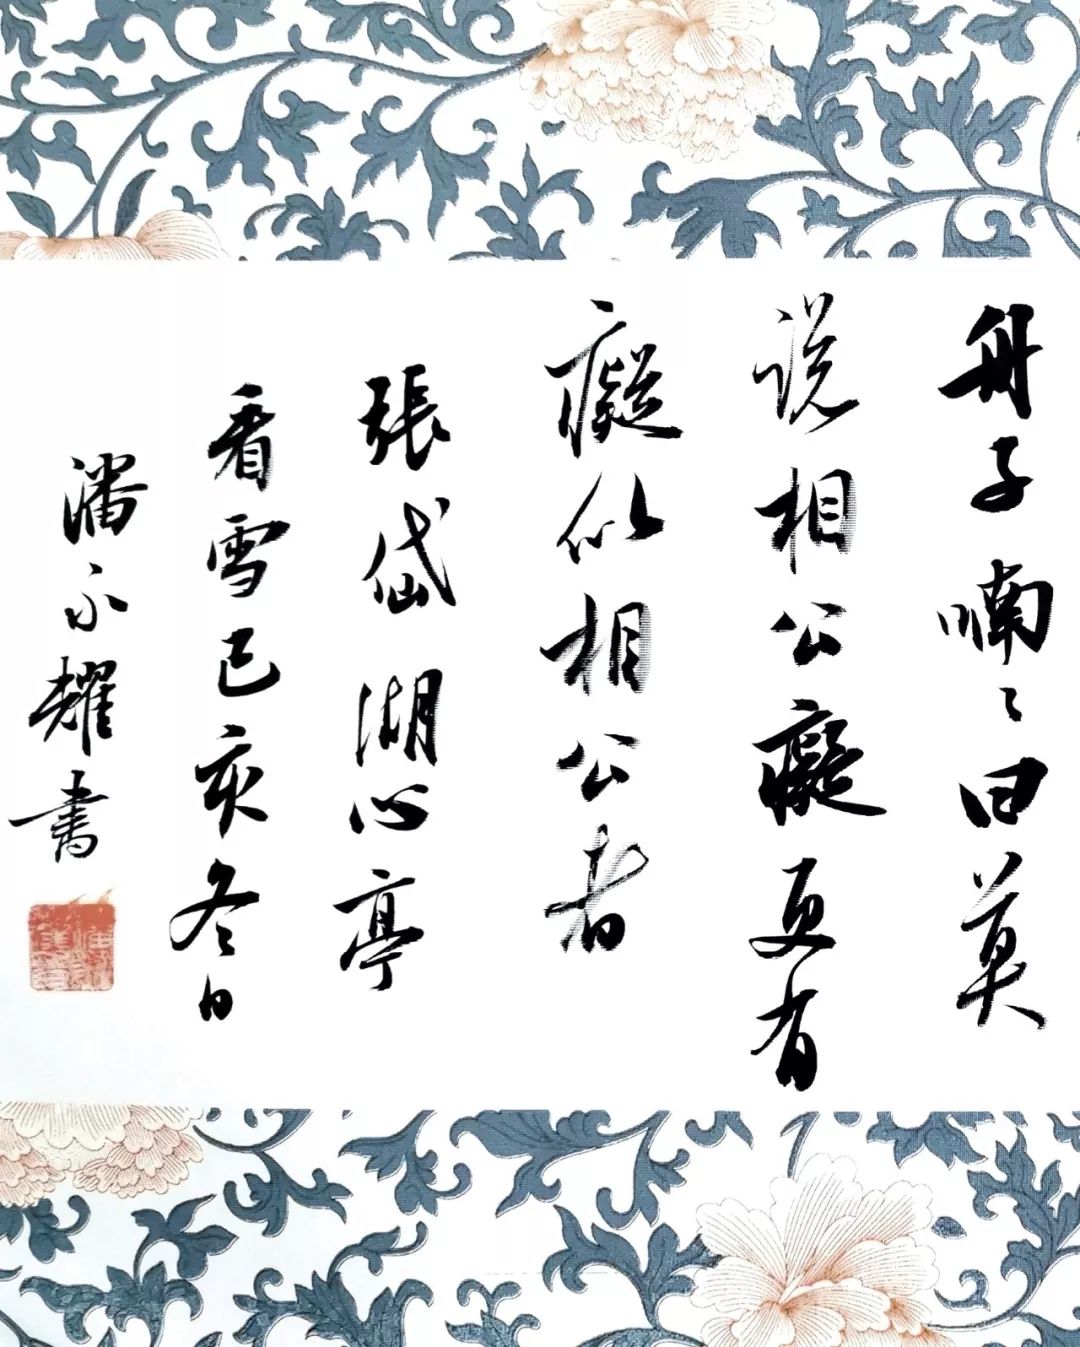 舟子喃々曰莫
說相公癡更有
癡似相公者
張岱湖心亭
看雪己亥冬日
潘永耀書